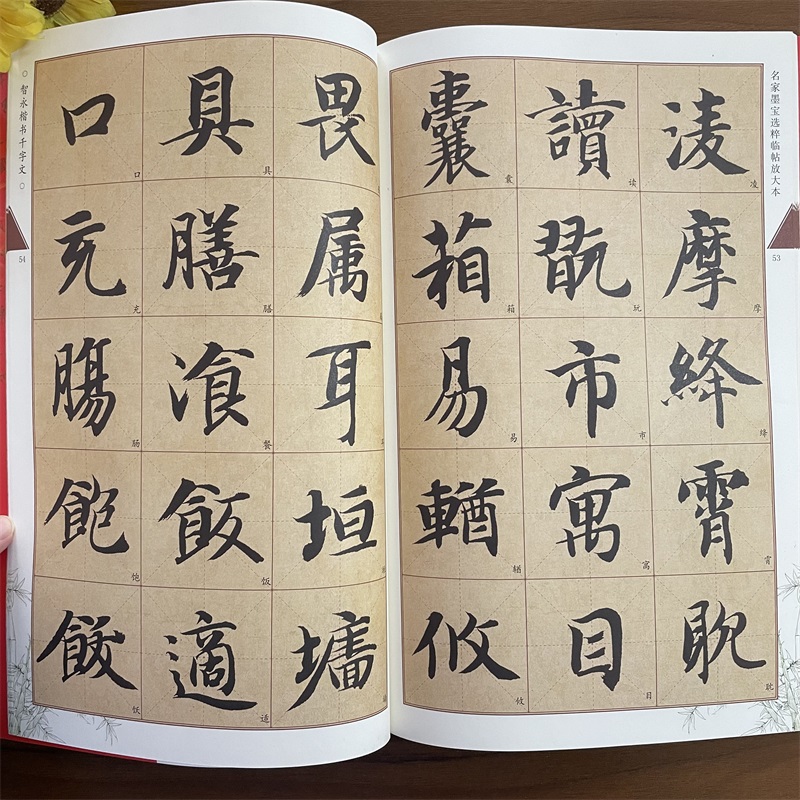 名家墨宝选粹临帖放大本
53
淩摩絳霄耽
凌摩绛霄耽
讀翫市寓目
读玩市寓目
囊箱易輶攸
囊箱易輶攸
畏属耳垣墻
具膳飡飯適
具膳餐饭适
口充腸飽飫
口充肠饱饫
○智永楷书千字文○
54